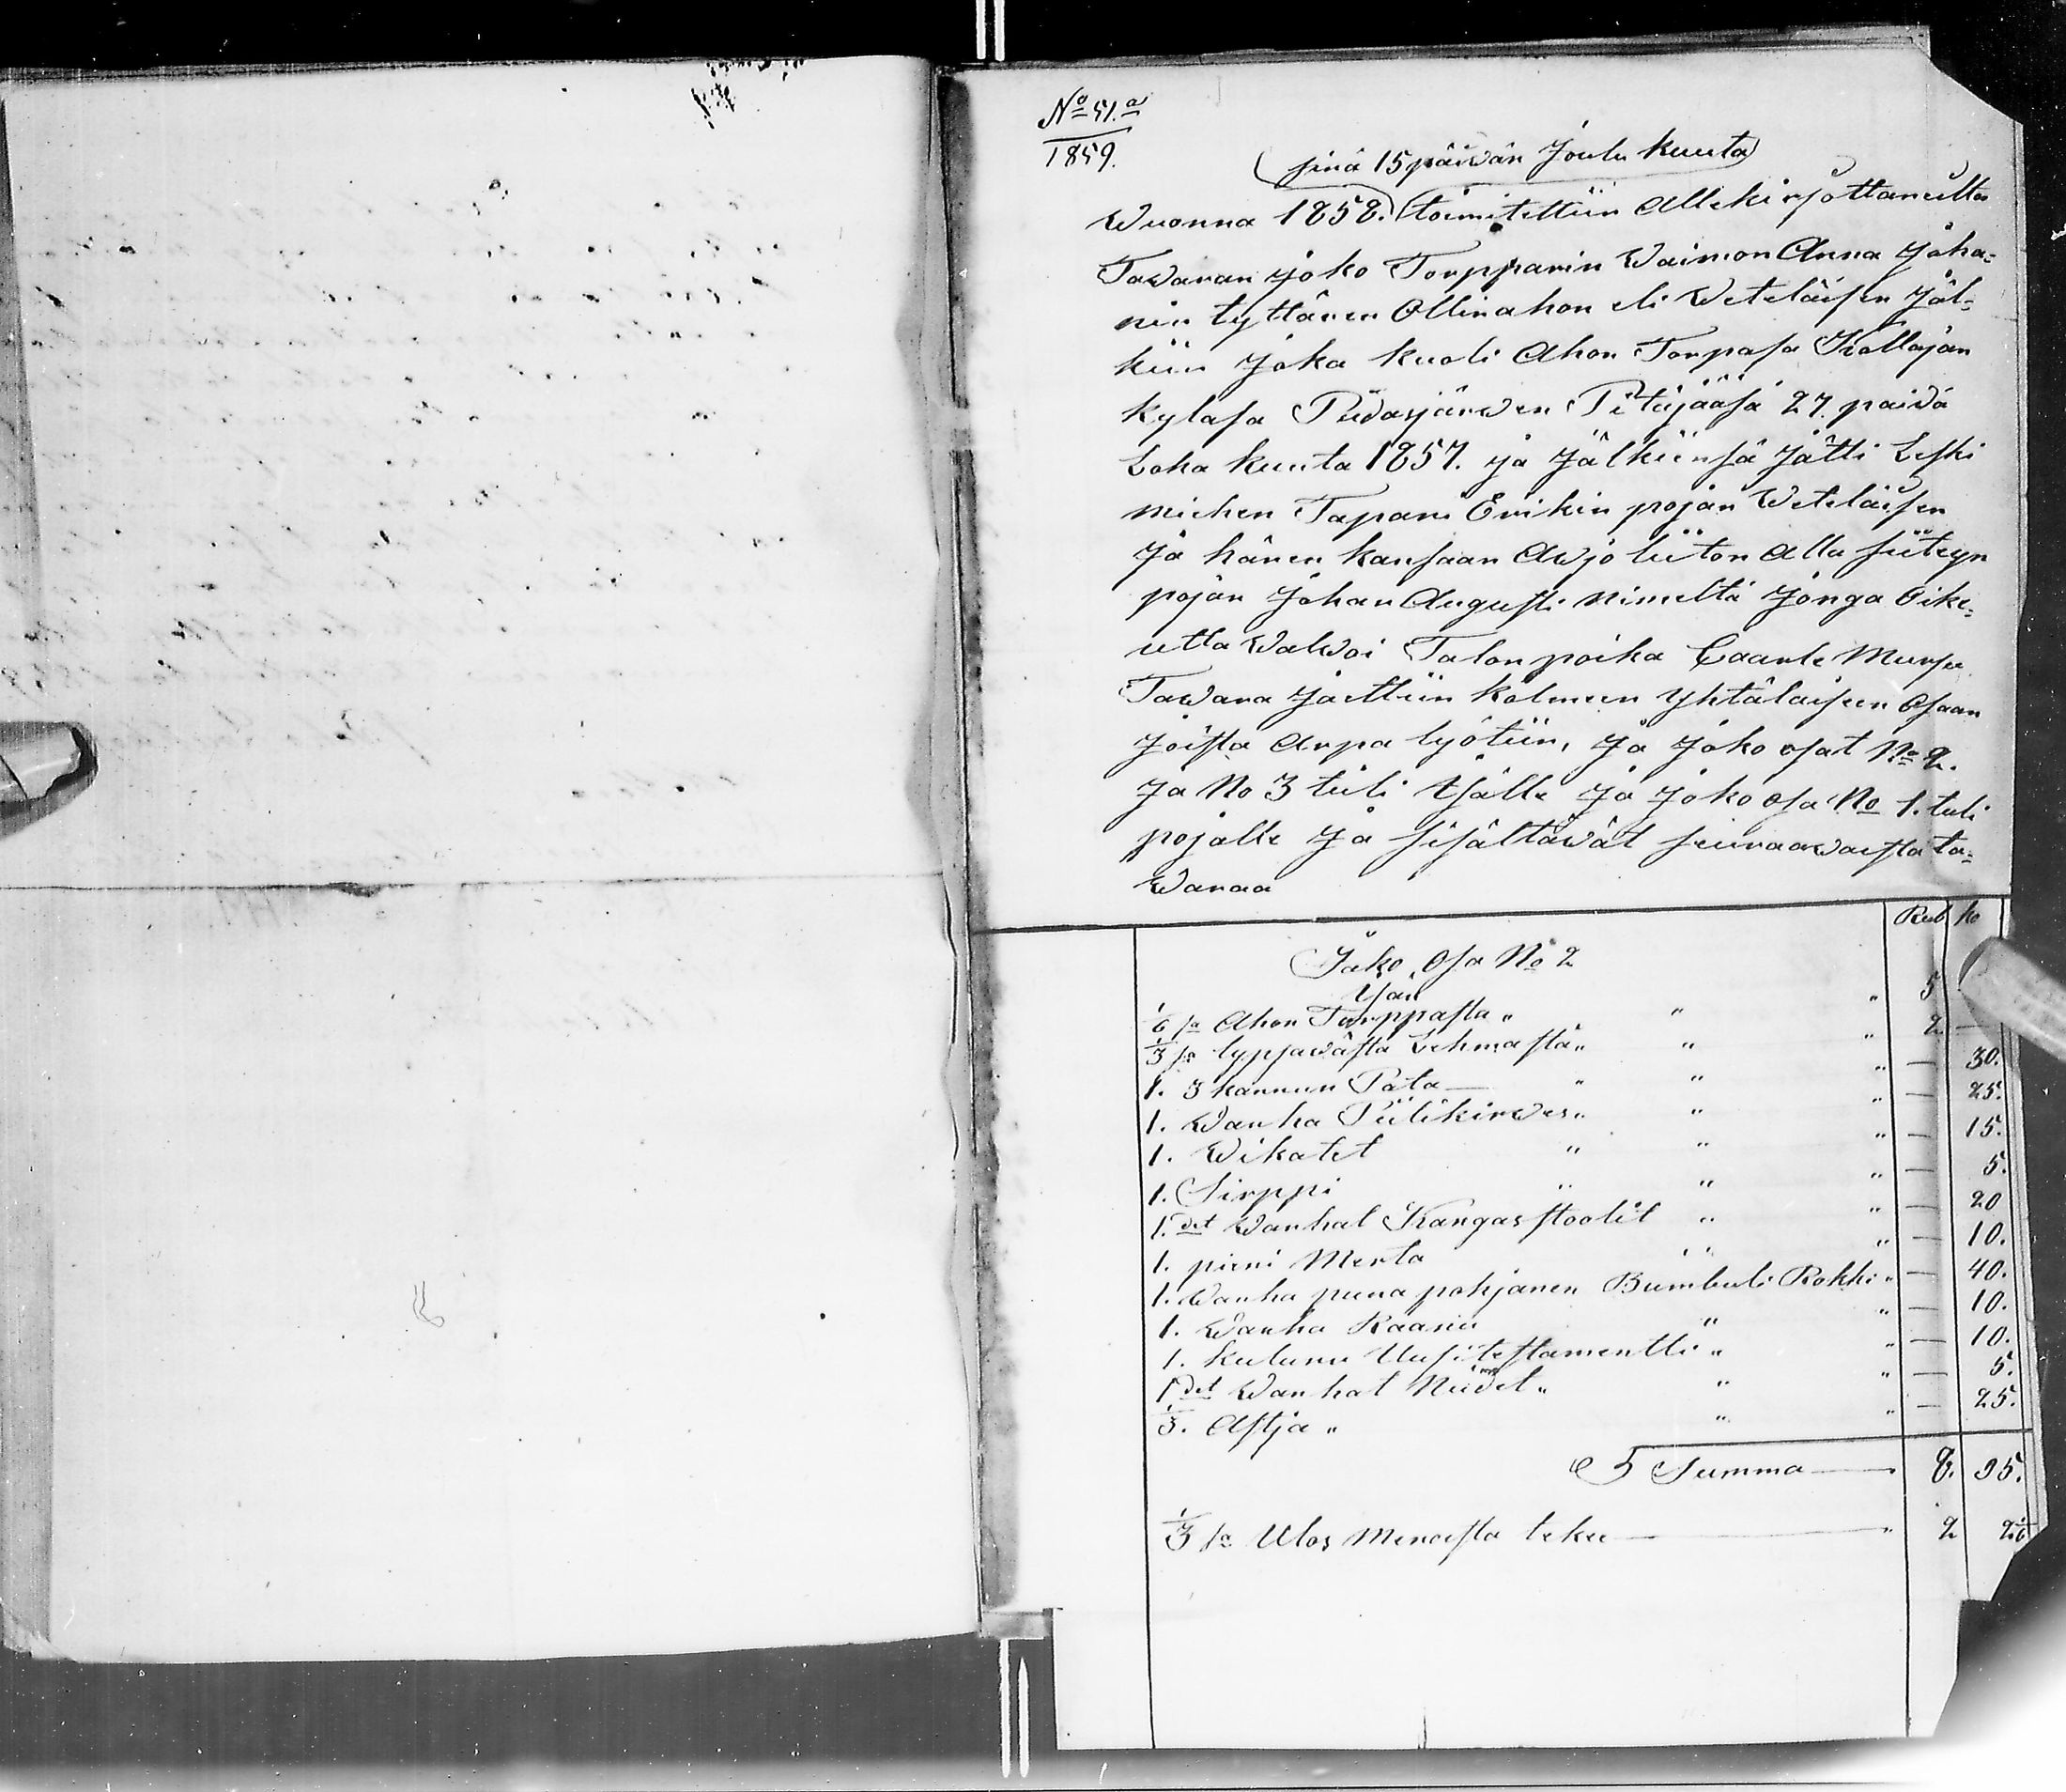 No 51.a
1859.
sinä 15 päivän Joulu kuuta
Wuonna 1858. toimitettiin Allekirjottaneilta
Tavaran joko Torpparin Waimon Anna Joha=
nin tyttären Ollinahon eli Weteläisen Jäl=
kiin Joka kuoli Ahon Torpasa Kollajan
kylasa Pudasjärwen Pitäjääsä 27. paiva
Loka kuuta 1857. ja Jälkiinsä Jätti Leski
miehen Tapani Erikin pojan Weteläisen
Ja hänen kansaan Awjo liiton Alla siiteyn
pojan Johan Augusti nimeltä Jonga Oike=
utta Walwoi Talon poika Caarle Mursu
Tawara Jaettiin kolmeen Yhtälaiseen Osaan
Joista Arpa lyötiin, Ja Joko osat No 2.
Ja No 3 tuli Isälle Ja Joko osa No 1. tuli
pojalle Ja sisältäwät seuraawaista ta=
waraa
Rub ko
Jako Osa No 2
Isan
1/6 sa Ahon Torppasta " " " 5
1/3 sa lypsawästa Lehmasta " " " 2 —
1. 3 kannun Pata — " " " — 30.
1. Wanha Piilikirwes " " " — 25.
1. Wikatet " " " — 15.
1. Sirppi " " " — 5.
1. det Wanhat Kangas stoolit " " — 20
1. pieni Merta " " — 10.
1. Wanha puna pohjanen Bumbuli Rokki " — 40.
1. Wanha Raanu " " — 10.
1. kulunu Uusi testamentti " " — 10.
1 det Wanhat Niidet " " " — 5.
1/3. Astja " " " — 25.
Summa — 8. 95.
1/3 sa Ulos Menoista tekee — " 2